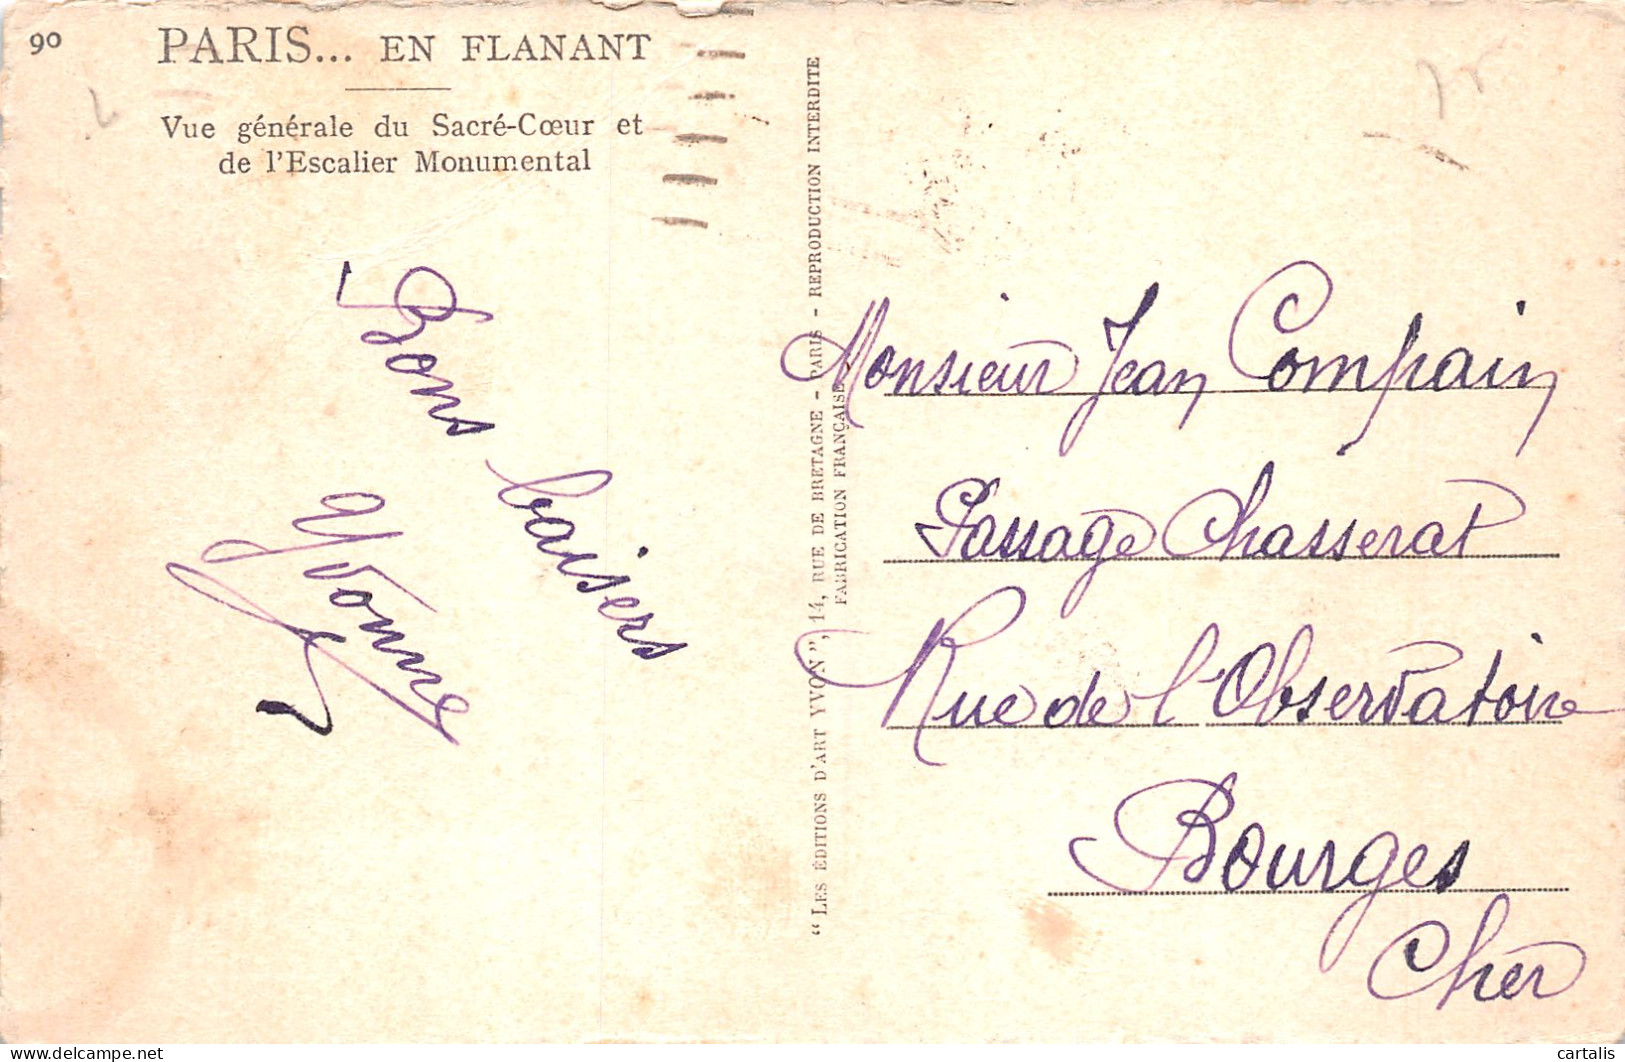 90
PARIS... EN FLANANT
Vue générale du Sacré-Cœur et
de l'Escalier Monumental
Bons baisers
Yvonne
"LES ÉDITIONS D'ART YVON", 14, RUE DE BRETAGNE - PARIS - REPRODUCTION INTERDITE
FABRICATION FRANÇAISE
Monsieur Jean Compain
Passage Chasserat
Rue de l'Observatoire
Bourges
Cher
cartalis